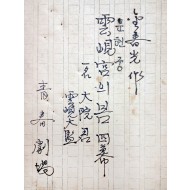 金春光 作
운현궁
雲峴宮의봄 四幕
一名 大院君
雲峴大監
青春劇場